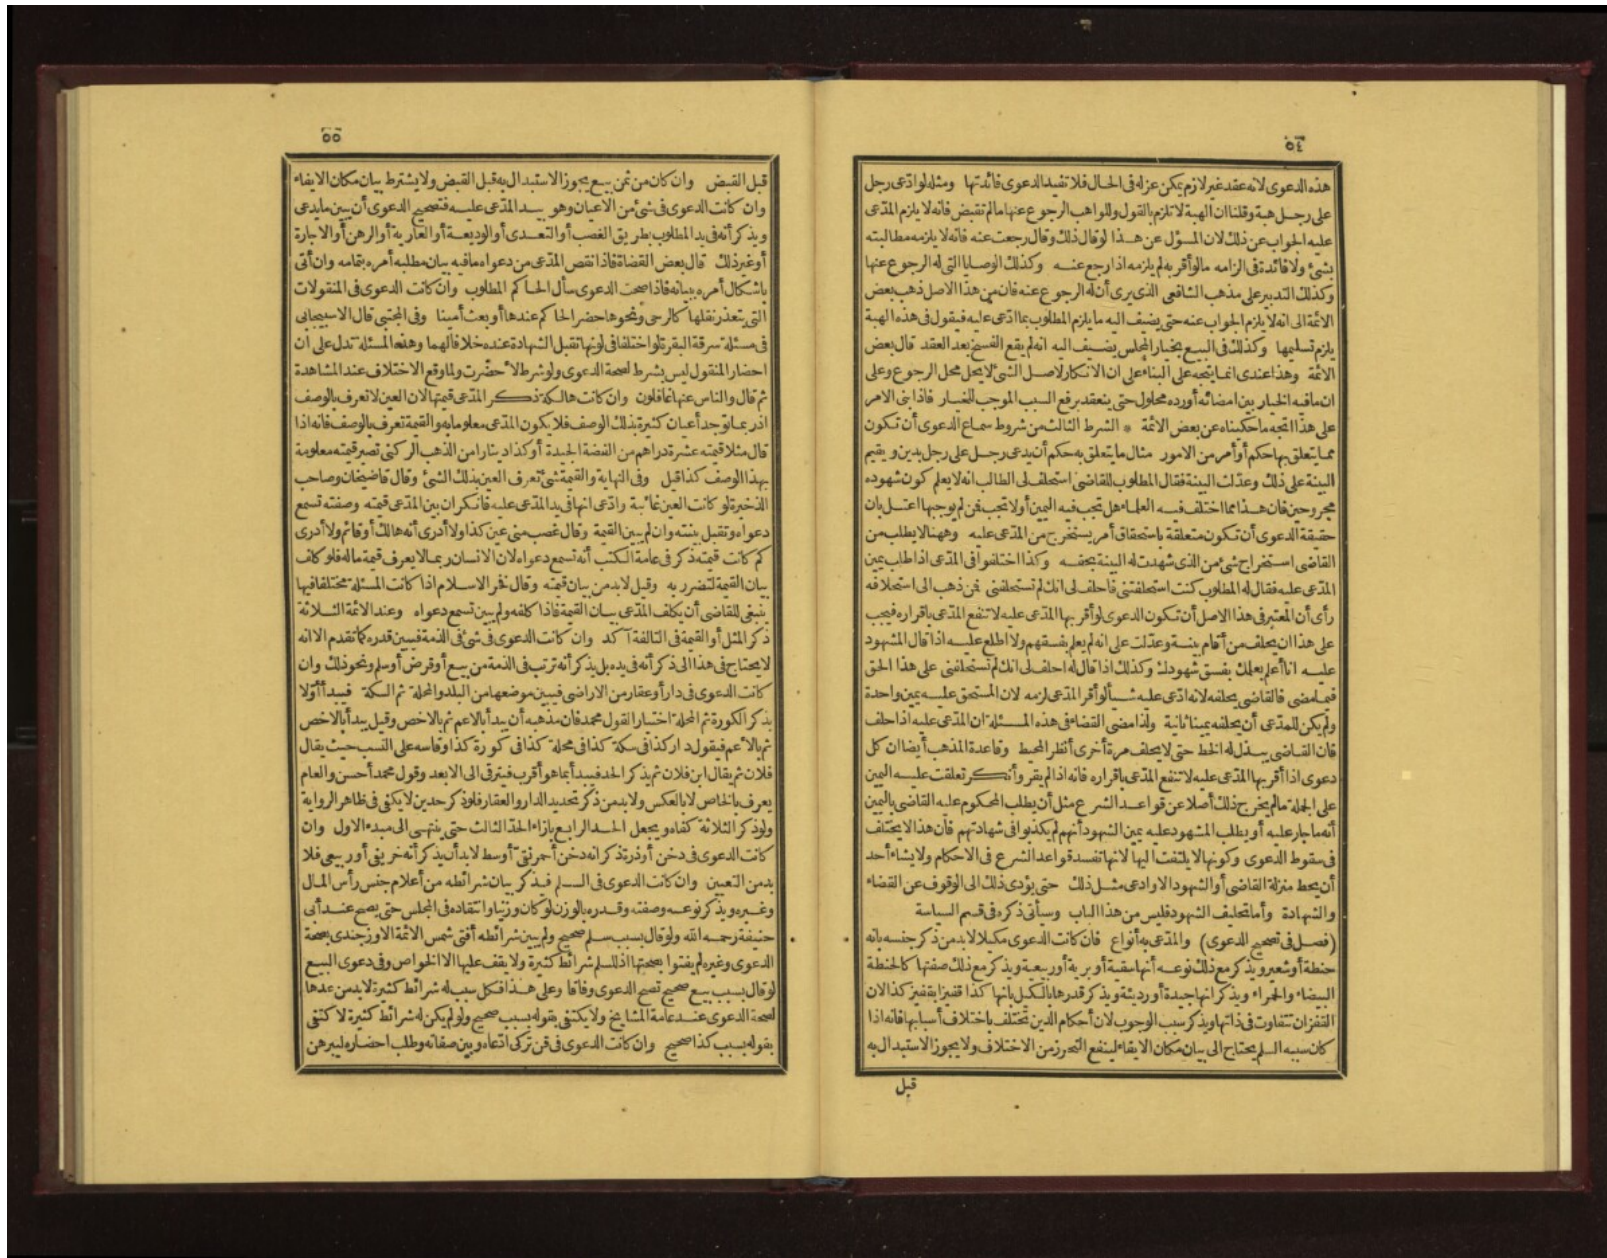 ٥٤
هذه الدعوى لانه عقد غير لازم يمكن عزله فى الحال فلا تفيد الدعوى فائدتها ومثله لو ادّعى رجل
على رجل هبة وقلنا ان الهبة لا تلزم بالقول وللواهب الرجوع عنها ما لم تقبض فانه لا يلزم المدّعى
عليه الجواب عن ذلك لان المسؤل عن هذا لو قال ذلك وقال رجعت عنه فانه لا يلزمه مطالبته
بشئ ولا فائدة فى الزامه ما لو أقر به لم يلزمه اذا رجع عنه وكذلك الوصايا التى له الرجوع عنها
وكذلك التدبير على مذهب الشافعى الذى يرى أن له الرجوع عنه فان من هذا الاصل ذهب بعض
الائمة الى انه لا يلزم الجواب عنه حتى يضيف اليه ما يلزم المطلوب بما ادّعى عليه فيقول فى هذه الهبة
يلزم تسليمها وكذلك فى البيع بخيار المجلس يضيف اليه انه لم يقع الفسخ بعد العقد قال بعض
الائمة وهذا عندى انما يتجه على البناء على ان الانكار لاصل الشئ لا يحل محل الرجوع وعلى
ان ما فيه الخيار بين امضائه أو رده محلول حتى ينعقد برفع السبب الموجب للخيار فاذا بنى الامر
على هذا اتجه ما حكيناه عن بعض الائمة * الشرط الثالث من شروط سماع الدعوى أن تكون
مما يتعلق بها حكم أو أمر من الامور مثال ما يتعلق به حكم أن يدعى رجل على رجل بدين ويقيم
البينة على ذلك وعدّلت البينة فقال المطلوب للقاضى استحلف لى الطالب انه لا يعلم كون شهوده
مجروحين فان هذا مما اختلف فيه العلماء هل تجب فيه اليمين أو لا تجب فمن لم يوجبها اعتل بان
حقيقة الدعوى أن تكون متعلقة باستحقاق أمر يستخرج من المدّعى عليه وههنا لا يطلب من
القاضى استخراج شئ من الذى شهدت له البينة بحقه وكذا اختلفوا فى المدّعى اذا طلب يمين
المدّعى عليه فقال له المطلوب كنت استحلفتنى فاحلف لى انك لم تستحلفنى فمن ذهب الى استحلافه
رأى أن المعتبر فى هذا الاصل أن تكون الدعوى لو أقر بها المدّعى عليه لا تنفع المدّعى باقراره فيجب
على هذا ان يحلف من أقام بينة وعدّلت على انه لم يعلم بفسقهم ولا اطلع عليه اذا قال المشهود
عليه انا أعلم بعلمك بفسق شهودك وكذلك اذا قال له احلف لى انك لم تستحلفنى على هذا الحق
فيما مضى فالقاضى يحلفه لانه ادّعى عليه شيأ لو أقر المدّعى لزمه لان المستحق عليه يمين واحدة
ولم يكن للمدّعى أن يحلفه يمينا ثانية ولذا مضى القضاء فى هذه المسئلة ان المدّعى عليه اذا حلف
فان القاضى يبذل له الخط حتى لا يحلف مرة أخرى أنظر المحيط وقاعدة المذهب أيضا ان كل
دعوى اذا أقر بها المدّعى عليه لا تنفع المدّعى باقراره فانه اذا لم يقر وأنكر تعلقت عليه اليمين
على الجملة ما لم يخرج ذلك أصلا عن قواعد الشرع مثل أن يطلب المحكوم عليه القاضى باليمين
أنه ما جار عليه أو يطلب المشهود عليه يمين الشهود أنهم لم يكذبوا فى شهادتهم فان هذا لا يختلف
فى سقوط الدعوى وكونها لا يلتفت اليها لانها تفسد قواعد الشرع فى الاحكام ولا يشاء أحد
أن يحط منزلة القاضى أو الشهود الا وادعى مثل ذلك حتى يؤدى ذلك الى الوقوف عن القضاء
والشهادة وأما تحليف الشهود فليس من هذا الباب وسيأتى ذكره فى قسم السياسة
(فصل فى تصحيح الدعوى) والمدّعى به أنواع فان كانت الدعوى مكيلا لا بد من ذكر جنسه بانه
حنطة أو شعير ويذكر مع ذلك نوعه أنها سقية أو برية أو ربيعية ويذكر مع ذلك صفتها كالحنطة
البيضاء والحمراء ويذكر انها جيدة أو رديئة ويذكر قدرها بالكيل بانها كذا قفيزا بقفيز كذا لان
القفزان تتفاوت فى ذاتها ويذكر سبب الوجوب لان أحكام الدين تختلف باختلاف أسبابها فانه اذا
كان سببه السلم يحتاج الى بيان مكان الايفاء لينفع التحرز من الاختلاف ولا يجوز الاستبدال به
قبل
٥٥
قبل القبض وان كان من ثمن بيع يجوز الاستبدال به قبل القبض ولا يشترط بيان مكان الايفاء
وان كانت الدعوى فى شئ من الاعيان وهو بيد المدّعى عليه فتصحيح الدعوى أن يبين ما يدعى
ويذكر أنه فى يد المطلوب بطريق الغصب أو التعدى أو الوديعة أو العارية أو الرهن أو الاجارة
أو غير ذلك قال بعض القضاة فاذا نقص المدّعى من دعواه ما فيه بيان مطلبه أمره بتمامه وان أتى
باشكال أمره ببيانه فاذا صحت الدعوى سأل الحاكم المطلوب وان كانت الدعوى فى المنقولات
التى يتعذر نقلها كالرحى ونحوها حضر الحاكم عندها أو بعث أمينا وفى المجتبى قال الاسبيجابى
فى مسئلة سرقة البقر قلو اختلفا فى لونها تقبل الشهادة عنده خلافا لهما وهذه المسئلة تدل على ان
احضار المنقول ليس بشرط لصحة الدعوى ولو شرط لأحضرت ولما وقع الاختلاف عند المشاهدة
ثم قال والناس عنها غافلون وان كانت هالكة ذكر المدّعى قيمتها لان العين لا تعرف بالوصف
اذ ربما توجد أعيان كثيرة بذلك الوصف فلا يكون المدّعى معلوما به والقيمة تعرف بالوصف فانه اذا
قال مثلا قيمته عشرة دراهم من الفضة الجيدة أو كذا دينارا من الذهب الركنى تصير قيمته معلومة
بهذا الوصف كذا قيل وفى النهاية والقيمة شئ تعرف العين بذلك الشئ وقال قاضيخان وصاحب
الذخيرة لو كانت العين غائبة وادّعى انها فى يد المدّعى عليه فانكر ان بين المدّعى قيمته وصفته تسمع
دعواه وتقبل بينته وان لم يبين القيمة وقال غصب منى عين كذا ولا أدرى أنه هالك أو قائم ولا أدرى
كم كانت قيمته ذكر فى عامة الكتب أنه تسمع دعواه لان الانسان ربما لا يعرف قيمة ماله فلو كلف
بيان القيمة لتضرر به وقيل لا بد من بيان قيمته وقال فخر الاسلام اذا كانت المسئلة مختلفا فيها
ينبغى للقاضى أن يكلف المدّعى ببيان القيمة فاذا كلفه ولم يبين تسمع دعواه وعند الائمة الثلاثة
ذكر المثل أو القيمة فى التالفة آكد وان كانت الدعوى فى شئ فى الذمة فيبين قدره كما تقدم الا انه
لا يحتاج فى هذا الى ذكر أنه فى يده بل يذكر أنه ترتب فى الذمة من بيع أو قرض أو سلم ونحو ذلك وان
كانت الدعوى فى دار أو عقار من الاراضى فيبين موضعها من البلد والمحلة ثم السكة فيبدأ أوّلا
بذكر الكورة ثم المحلة اختيارا لقول محمد فان مذهبه أن يبدأ بالاعم ثم بالاخص وقيل يبدأ بالاخص
ثم بالأعم فيقول دار كذا فى سكة كذا فى محلة كذا فى كورة كذا وقاسه على النسب حيث يقال
فلان ثم يقال ابن فلان ثم يذكر الجد فيبدأ بما هو أقرب فيترقى الى الابعد وقول محمد أحسن والعام
يعرف بالخاص لا بالعكس ولا بد من ذكر تحديد الدار والعقار فلو ذكر حدين لا يكفى فى ظاهر الرواية
ولو ذكر الثلاثة كفاه ويجعل الحد الرابع بازاء الحدّ الثالث حتى ينتهى الى مبدء الاول وان
كانت الدعوى فى دخن أو ذرة ذكر انه دخن أحمر نقى أو وسط لا بد أن يذكر أنه خريفى أو ربيعى فلا
بد من التعيين وان كانت الدعوى فى السلم فيذكر بيان شرائطه من أعلام جنس رأس المال
وغيره ويذكر نوعه وصفته وقدره بالوزن لو كان وزنيا وانتقاده فى المجلس حتى يصح عند أبى
حنيفة رحمه الله ولو قال بسبب سلم صحيح ولم يبين شرائطه أفتى شمس الائمة الاوزجندى بصحة
الدعوى وغيره لم يفتوا بصحتها اذ للسلم شرائط كثيرة ولا يقف عليها الا الخواص وفى دعوى البيع
لو قال بسبب بيع صحيح تصح الدعوى وفاقا وعلى هذا فكل سبب له شرائط كثيرة لا بد من عدها
لصحة الدعوى عند عامة المشايخ ولا يكتفى بقوله بسبب صحيح ولو لم يكن له شرائط كثيرة لاكتفى
بقوله بسبب كذا صحيح وان كانت الدعوى فى قن تركى ادّعاه وبين صفاته وطلب احضاره ليبرهن